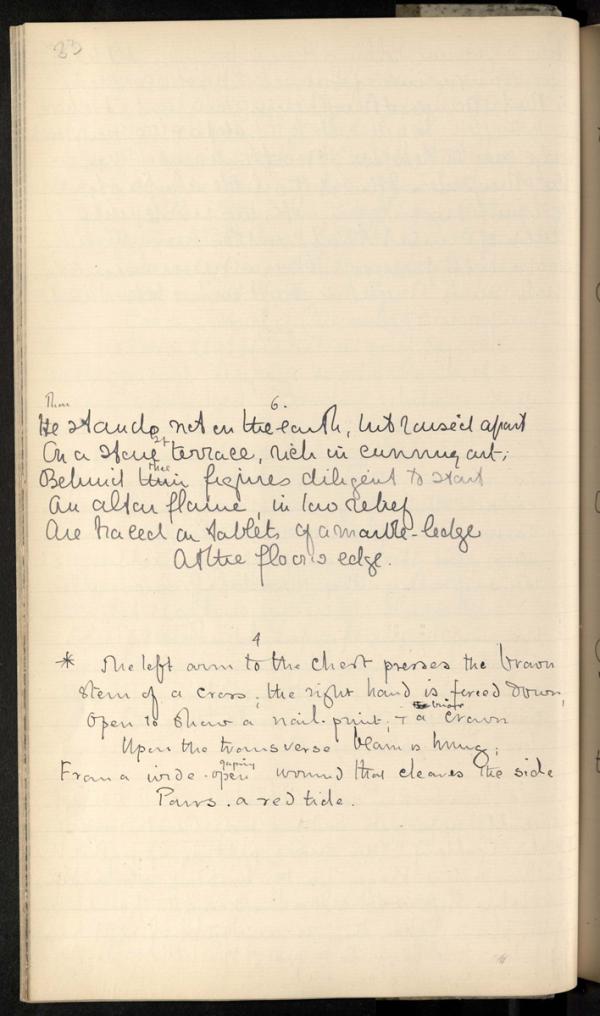 33
6.
Thou
He stands not on the earth, but raised apart
On a stone terrace, rich in cunning art;
Behind thee figures diligent to start
An altar flame, in low relief
Are traced on tablets of a marble-ledge
At the floor's edge.
4
* The left arm to the chest presses the brown
Stem of a cross; the right hand is forced down,
Open to show a nail-print; + a briar crown
Upon the transverse beam is hung;
From a wide-open gaping wound that cleaves the side
Pours a red tide.